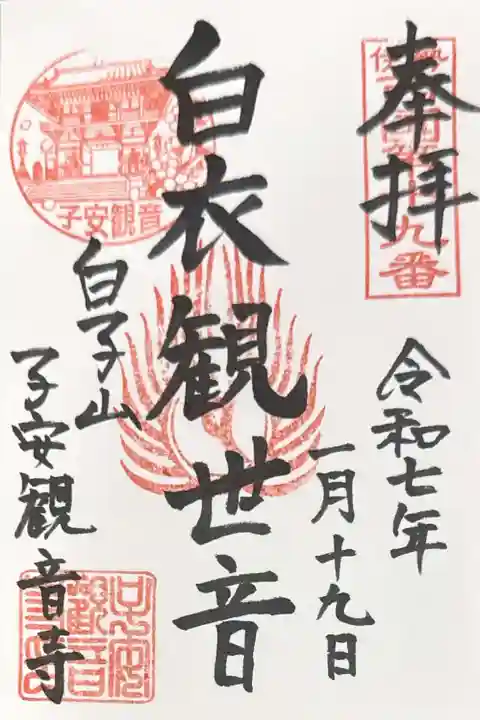 奉拝
九番
令和七年
一月十九日
白衣観世音
子安観音
白子山
子安観音寺